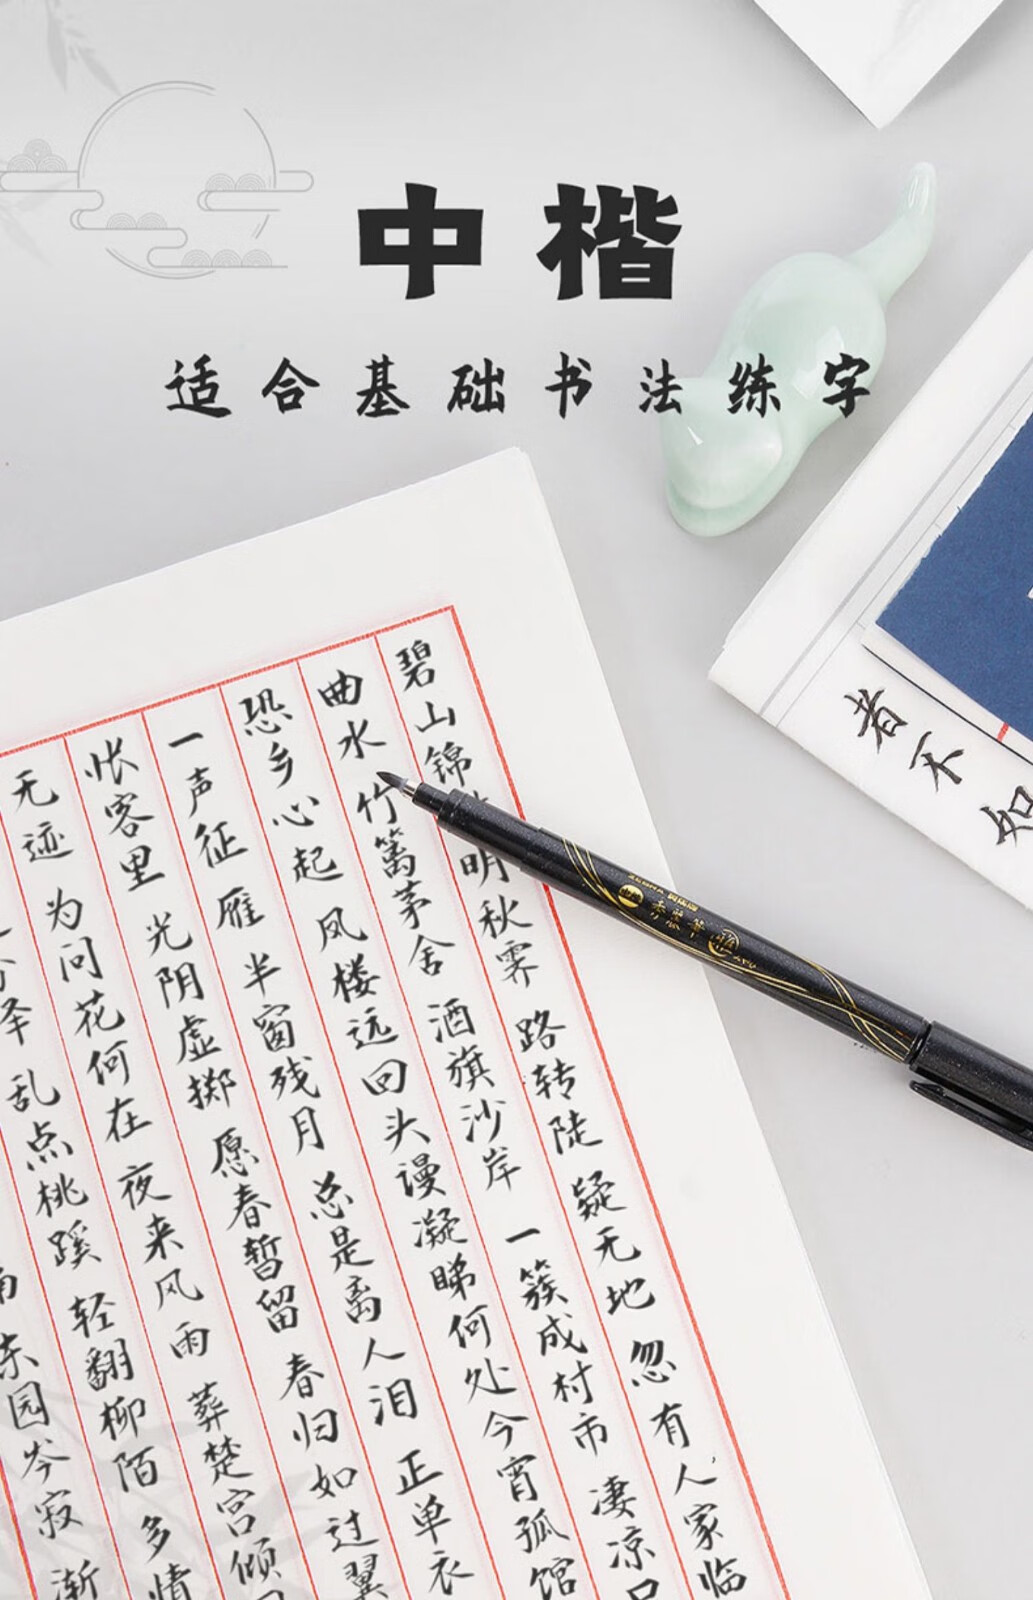 中楷
适合基础书法练字
碧山锦 明秋霁 路转陡 疑无地 忽有人家临
曲水 竹篱茅舍 酒旗沙岸 一簇成村市 凄凉
恐乡心起 凤楼远 回头谩凝睇 何处今宵孤馆
一声征雁 半窗残月 总是离人泪 正单衣
怅客里 光阴虚掷 愿春暂留 春归如过翼
无迹 为问花何在 夜来风雨 葬楚宫倾
泽 乱点桃蹊 轻翻柳陌 多情
东园岑寂 渐
者不知
秀丽笔